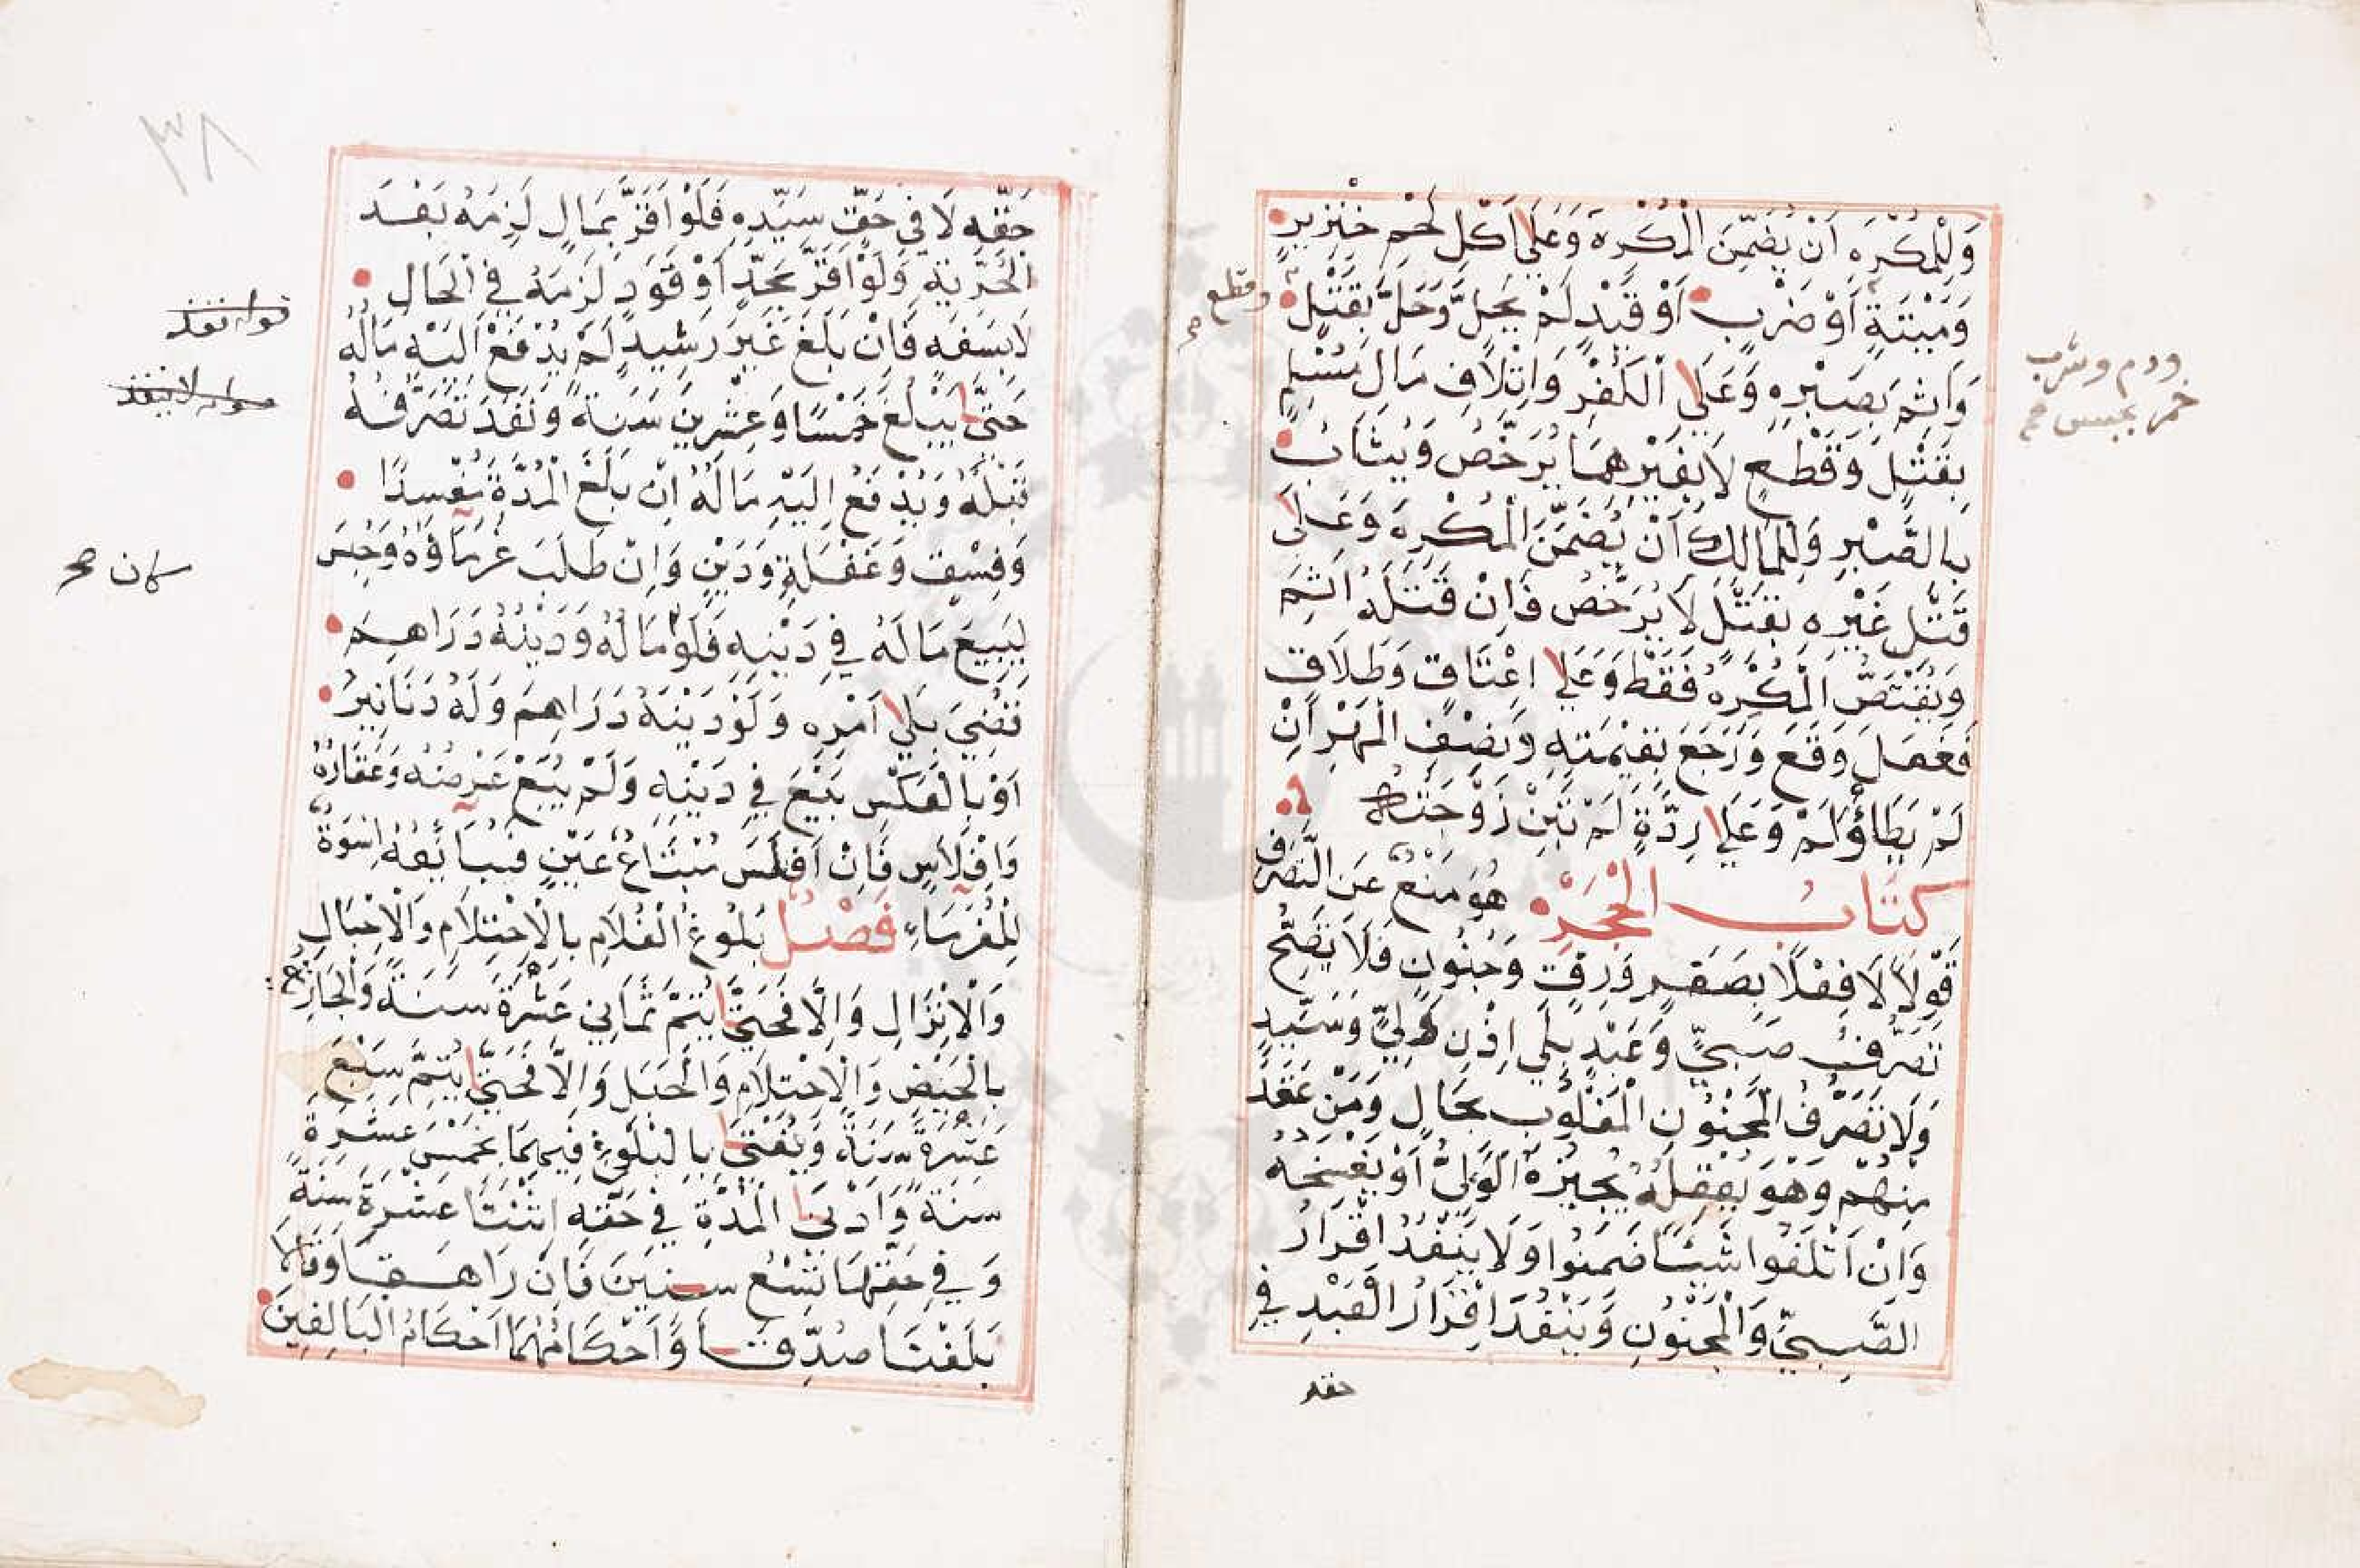 وَلِلْمُكْرَهِ اَنْ يُضَمِّنَ الْمُكْرِهَ وَعَلَى اَكْلِ لَحْمِ خِنْزِيرٍ
وَمَيْتَةٍ اَوْ ضَرْبٍ اَوْ قَيْدٍ لَمْ يَحِلَّ وَحَلَّ بِقَتْلٍ
وقطع صح
ودم وشرب
خمر بحبس صح
وَاَثِمَ بِصَبْرِهِ وَعَلَى الْكُفْرِ وَاِتْلَافِ مَالِ مُسْلِمٍ
بِقَتْلٍ وَقَطْعٍ لَا بِغَيْرِهِمَا يُرَخَّصُ وَيُثَابُ
بِالصَّبْرِ وَلِلْمَالِكِ اَنْ يُضَمِّنَ الْمُكْرِهَ وَعَلَى
قَتْلِ غَيْرِهِ بِقَتْلٍ لَا يُرَخَّصُ فَاِنْ قَتَلَهُ اَثِمَ
وَيُقْتَصُّ الْمُكْرِهُ فَقَطْ وَعَلَى اِعْتَاقٍ وَطَلَاقٍ
فَفَعَلَ وَقَعَ وَرَجَعَ بِقِيْمَتِهِ وَنِصْفِ الْمَهْرِ اَنْ
لَمْ يَطَاؤُلَمْ وَعَلَى رِدَّةٍ لَمْ تَبِنْ زَوْجَتُهُ
كتَابُ الْحَجْرِ هُوَ مَنْعٌ عَنِ التَّصَرُّفِ
قَوْلًا لَا فِعْلًا بِصَغَرٍ وَرِقٍّ وَجُنُونٍ فَلَا يَصِحُّ
تَصَرُّفُ صَبِيٍّ وَعَبْدٍ بِلَى اِذْنِ وَلِيٍّ وَسَيِّدٍ
وَلَا تَصَرُّفُ الْمَجْنُونِ الْمَغْلُوبِ بِحَالٍ وَمَنْ عَقَدَ
مِنْهُمْ وَهُوَ يَعْقِلُهُ يُجِيزُهُ الْوَلِيُّ اَوْ يَفْسَخُهُ
وَاِنْ اَتْلَفُوا شَيْئًا ضَمِنُوا وَلَا يَنْفُذُ اِقْرَارُ
الصَّبِيِّ وَالْمَجْنُونِ وَيَنْفُذُ اِقْرَارُ الْعَبْدِ فِي
حقه
٣٨
حَقِّهِ لَا فِي حَقِّ سَيِّدِهِ فَلَوْ اَقَرَّ بِمَالٍ لَزِمَهُ بَعْدَ
الْحُرِّيَّةِ وَلَوْ اَقَرَّ بِحَدٍّ اَوْ قَوَدٍ لَزِمَهُ فِي الْحَالِ
لَا بِسَفَهٍ فَاِنْ بَلَغَ غَيْرَ رَشِيدٍ لَمْ يُدْفَعْ اِلَيْهِ مَالُهُ
حَتَّى يَبْلُغَ خَمْسًا وَعِشْرِينَ سَنَةً وَنَفَذَ تَصَرُّفُهُ
قَبْلَهُ وَيُدْفَعُ اِلَيْهِ مَالُهُ اِنْ بَلَغَ الْمُدَّةَ مُفْسِدًا
وَفِسْقٍ وَغَفْلَةٍ وَدَيْنٍ وَاِنْ طَلَبَ غُرَمَاؤُهُ وَحُبِسَ
لِيَبِيعَ مَالَهُ فِي دَيْنِهِ فَلَوْ مَالُهُ وَدَيْنُهُ دَرَاهِمَ
كان صح
قُضِيَ بِلَى اَمْرِهِ وَلَوْ دَيْنُهُ دَرَاهِمَ وَلَهُ دَنَانِيرُ
اَوْ بِالْعَكْسِ بِيْعَ فِي دَيْنِهِ وَلَمْ يُبَعْ عَرْضُهُ وَعَقَارُهُ
وَاِفْلَاسٍ فَاِنْ اَفْلَسَ مُبْتَاعُ عَيْنٍ فَبَائِعُهُ اِسْوَةٌ
لِلْغُرَمَاءِ فَصْلٌ بُلُوغُ الْغُلَامِ بِالْاِحْتِلَامِ وَالْاِحْبَالِ
وَالْاِنْزَالِ وَاِلَّا فَحَتَّى يُتِمَّ ثَمَانِي عَشْرَةَ سَنَةً وَالْجَارِيَةِ
بِالْحَيْضِ وَالْاِحْتِلَامِ وَالْحَبَلِ وَاِلَّا فَحَتَّى يُتِمَّ سَبْعَ
عَشْرَةَ سَنَةً وَيُفْتَى بِالْبُلُوغِ فِيهِمَا بِخَمْسَ عَشْرَةَ
سَنَةً وَاَدْنَى الْمُدَّةِ فِي حَقِّهِ اِثْنَتَا عَشْرَةَ سَنَةً
وَفِي حَقِّهَا تِسْعُ سِنِينَ فَاِنْ رَاهَقَا وَقَالَا
بَلَغْنَا صُدِّقَا وَاَحْكَامُهُمَا اَحْكَامُ الْبَالِغِينَ